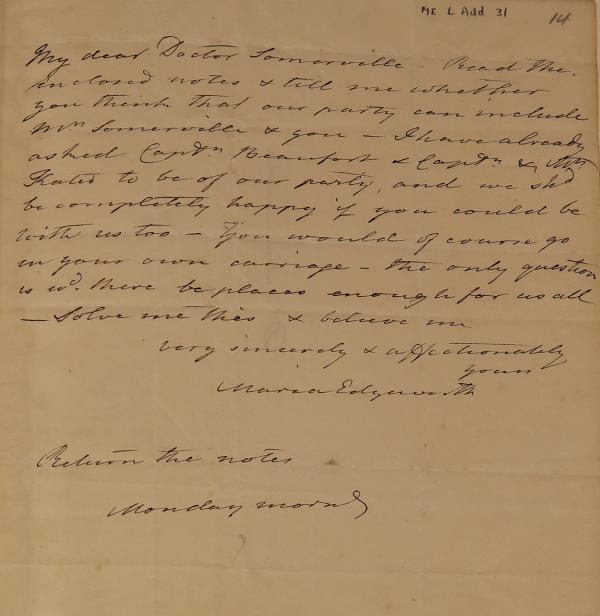 ME L Add 31
14
My dear Doctor Somerville – Read the
inclosed notes & tell me whether
you think that our party can include
Mrs Somerville & you – I have already
asked Captn Beaufort & Captn & Mrs
Kater to be of our party, and we shd
be completely happy if you could be
with us too – You would of course go
in your own carriage – the only question
is wd there be places enough for us all
– Solve me this & believe me
very sincerely & affectionately
yours
Maria Edgeworth
Return the notes
Monday morng